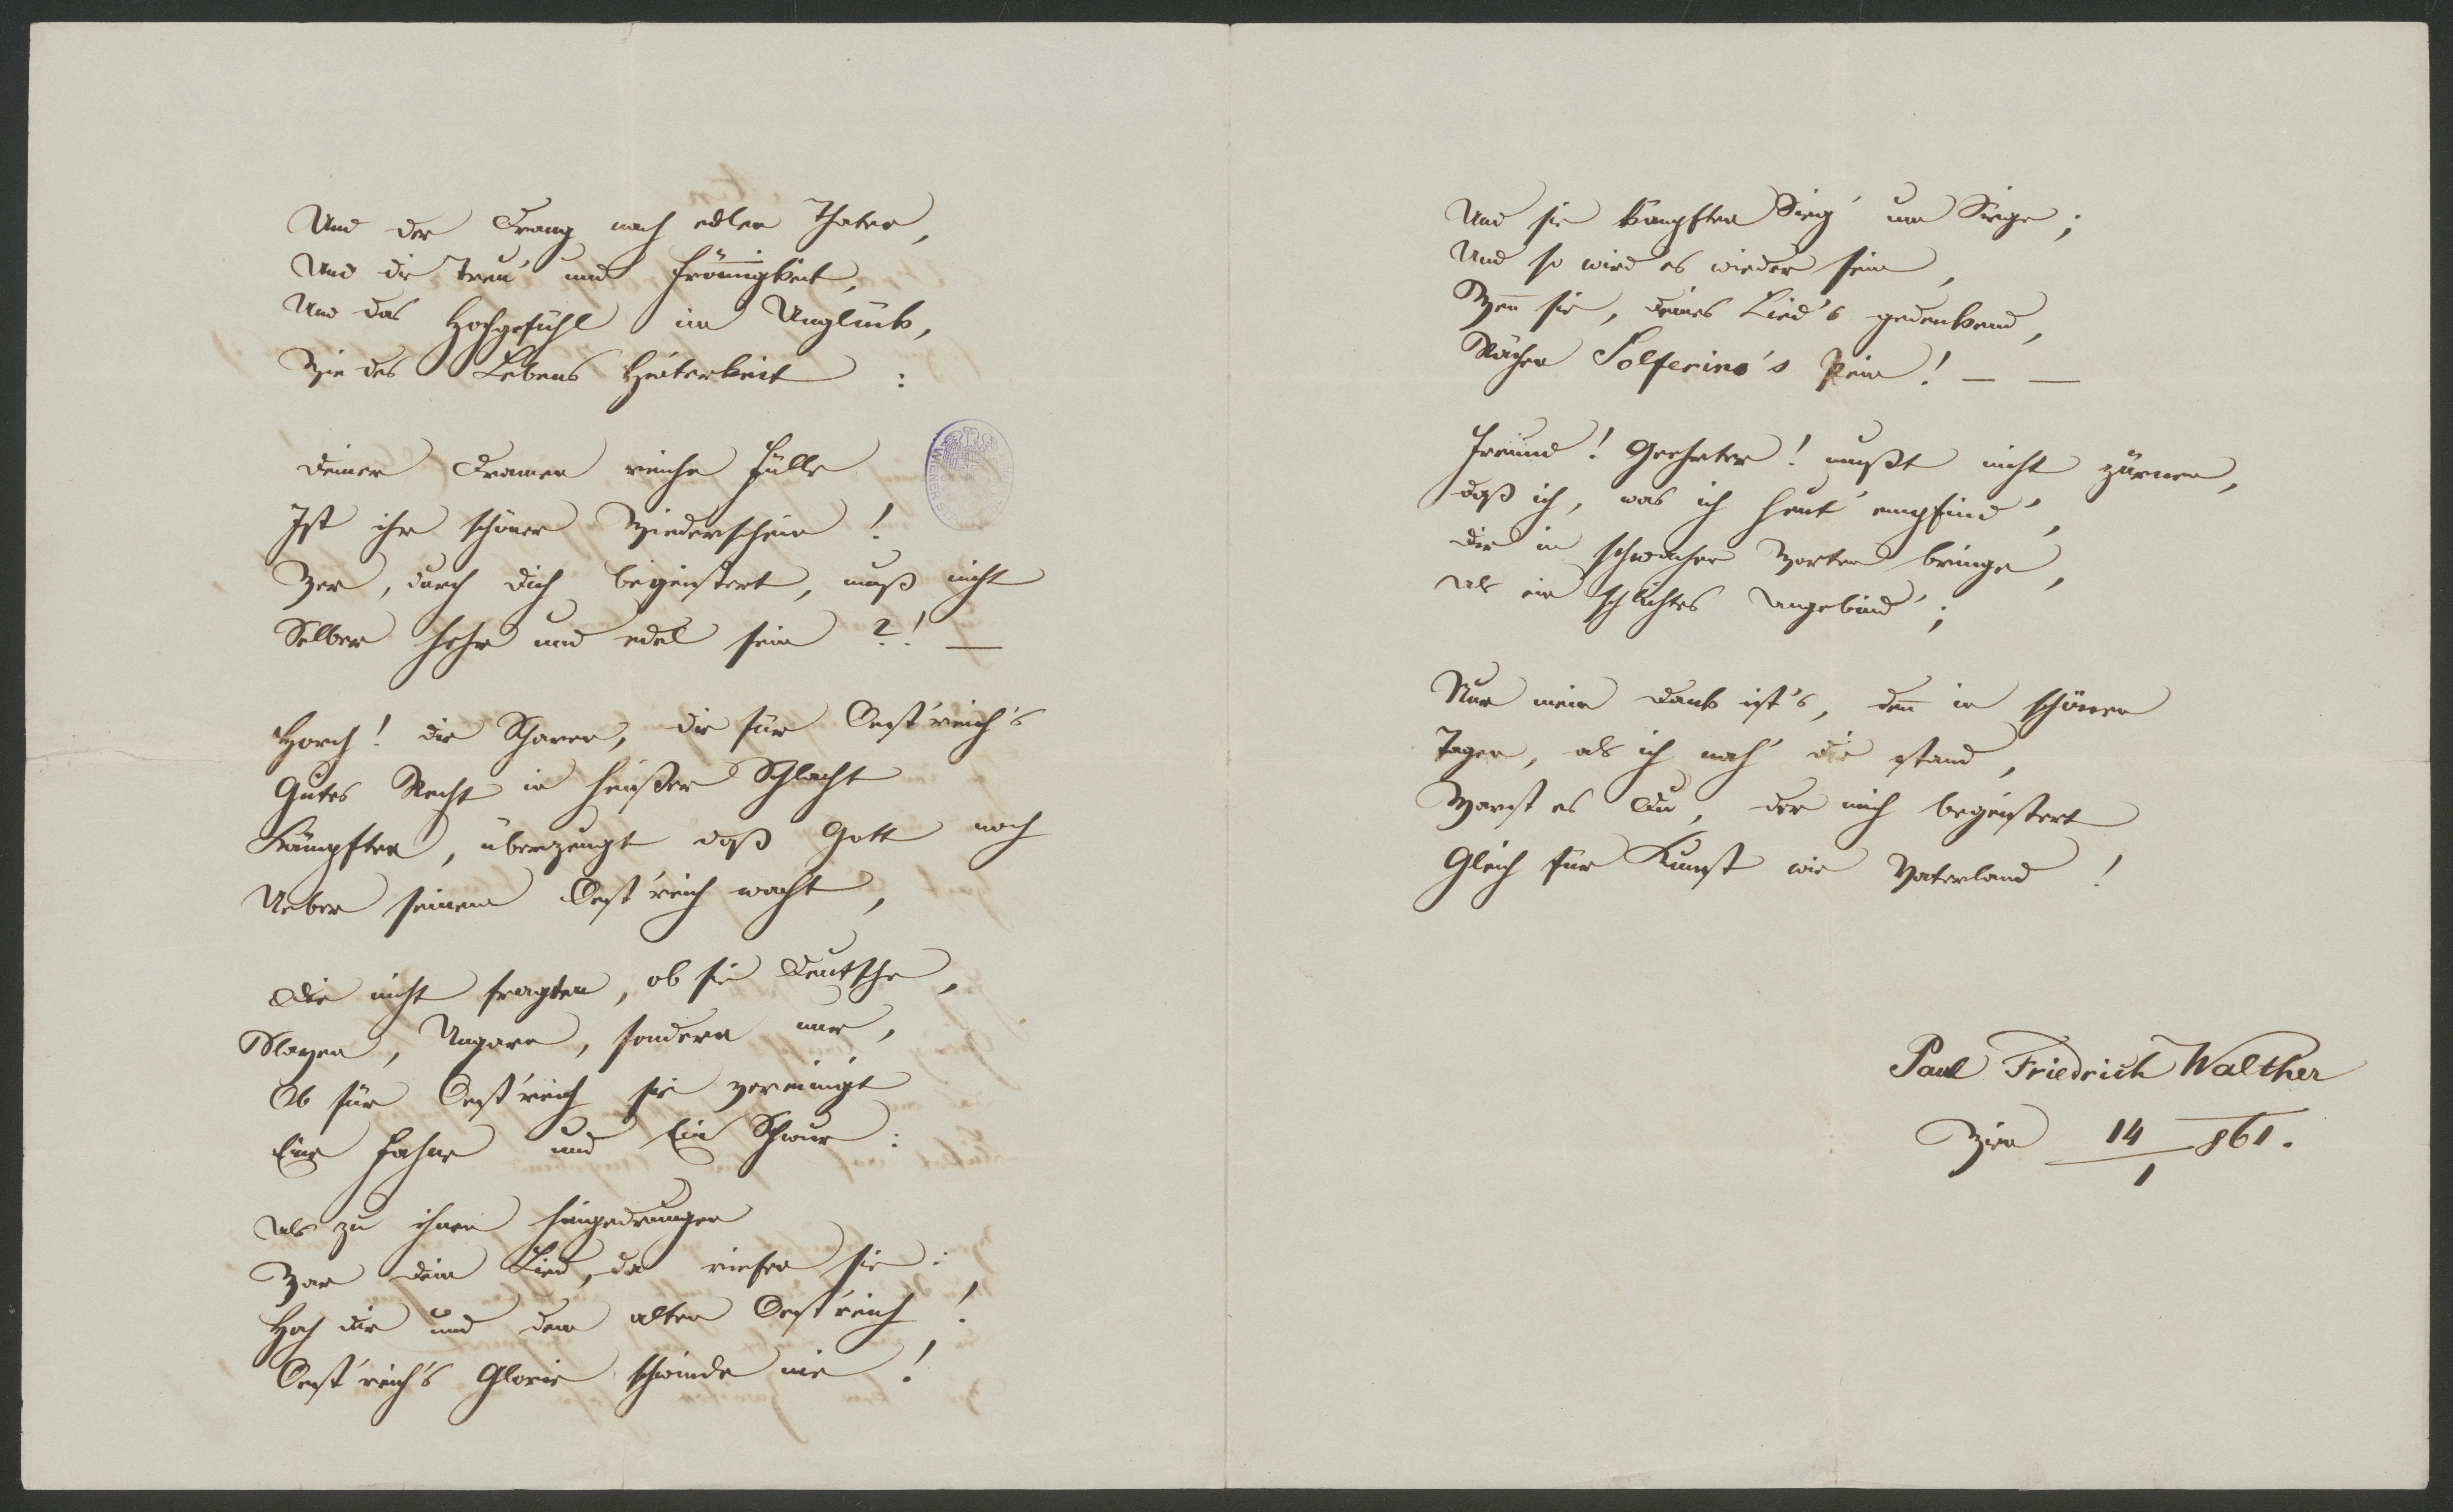 Und der Drang nach edlen Thaten,
Und die Treu' und Frömigkeit,
Und das Hochgefühl im Unglück,
Wie des Lebens Heiterkeit :
Deiner Dramen reiche Fülle
Ist ihr schöner Wiederschein !
Wer, durch Dich begeistert, muß nicht
Selber hehr und edel sein ?! —
Horch! die Scharen, die für Oest'reich's
Gutes Recht in heißer Schlacht
Kämpften, überzeugt daß Gott noch
Ueber seinem Oest'reich wacht,
Die nicht fragten, ob sie Deutsche,
Slaven, Ungarn, sondern nur,
Ob für Oest'reich sie vereinigt
Eine Fahne und Ein Schwur :
Als zu ihnen hingedrungen
War dein Lied, da riefen sie :
Hoch dir und dem alten Oest'reich !
Oest'reich's Glorie schwinde nie !
WIENER
Und sie kämpften Sieg' um Siege ;
Und so wird es wieder sein,
Wen sie, deines Lied's gedenkend,
Rächen Solferino's Pein ! — —
Freund ! Geehrter ! mußt nicht zürnen,
daß ich, was ich heut' empfind',
Dir in schwachen Worten bringe,
Als ein schlichtes Angebind' ;
Nur mein Dank ist's, den in schönen
Tagen, als ich nah' dir stand,
Warst es Du, der mich begeistert
Gleich für Kunst wie Vaterland !
Paul Friedrich Walther
Wien 14/1 861.